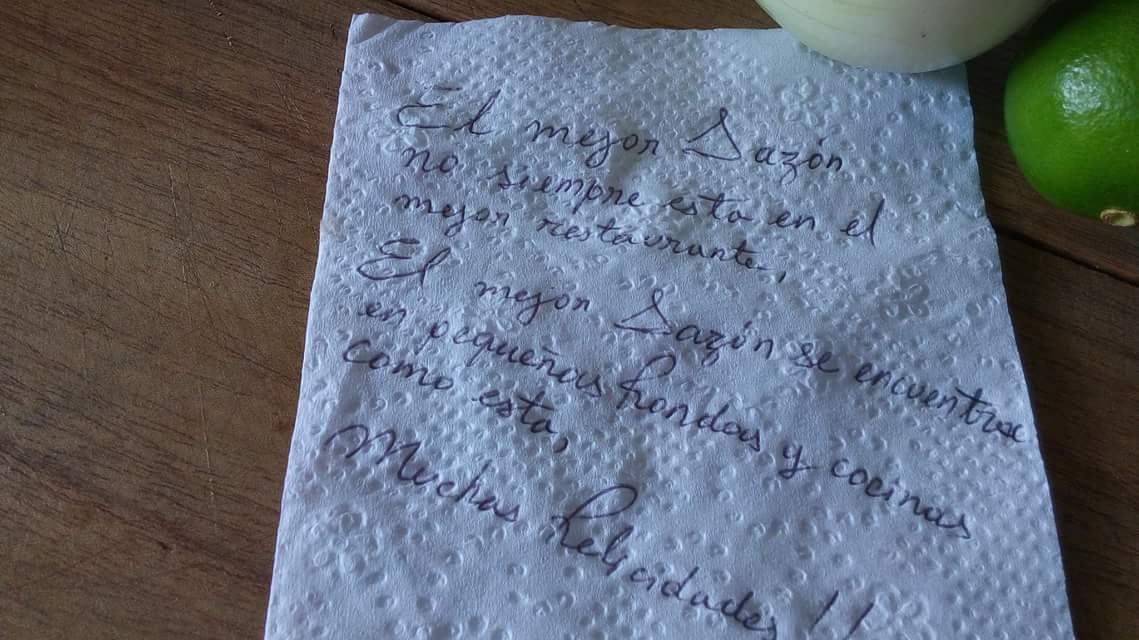 El mejor Sazón
no siempre esta en el
mejor restaurante,
El mejor Sazón se encuentra
en pequeñas fondas y cocinas
como esta,
Muchas felicidades!!